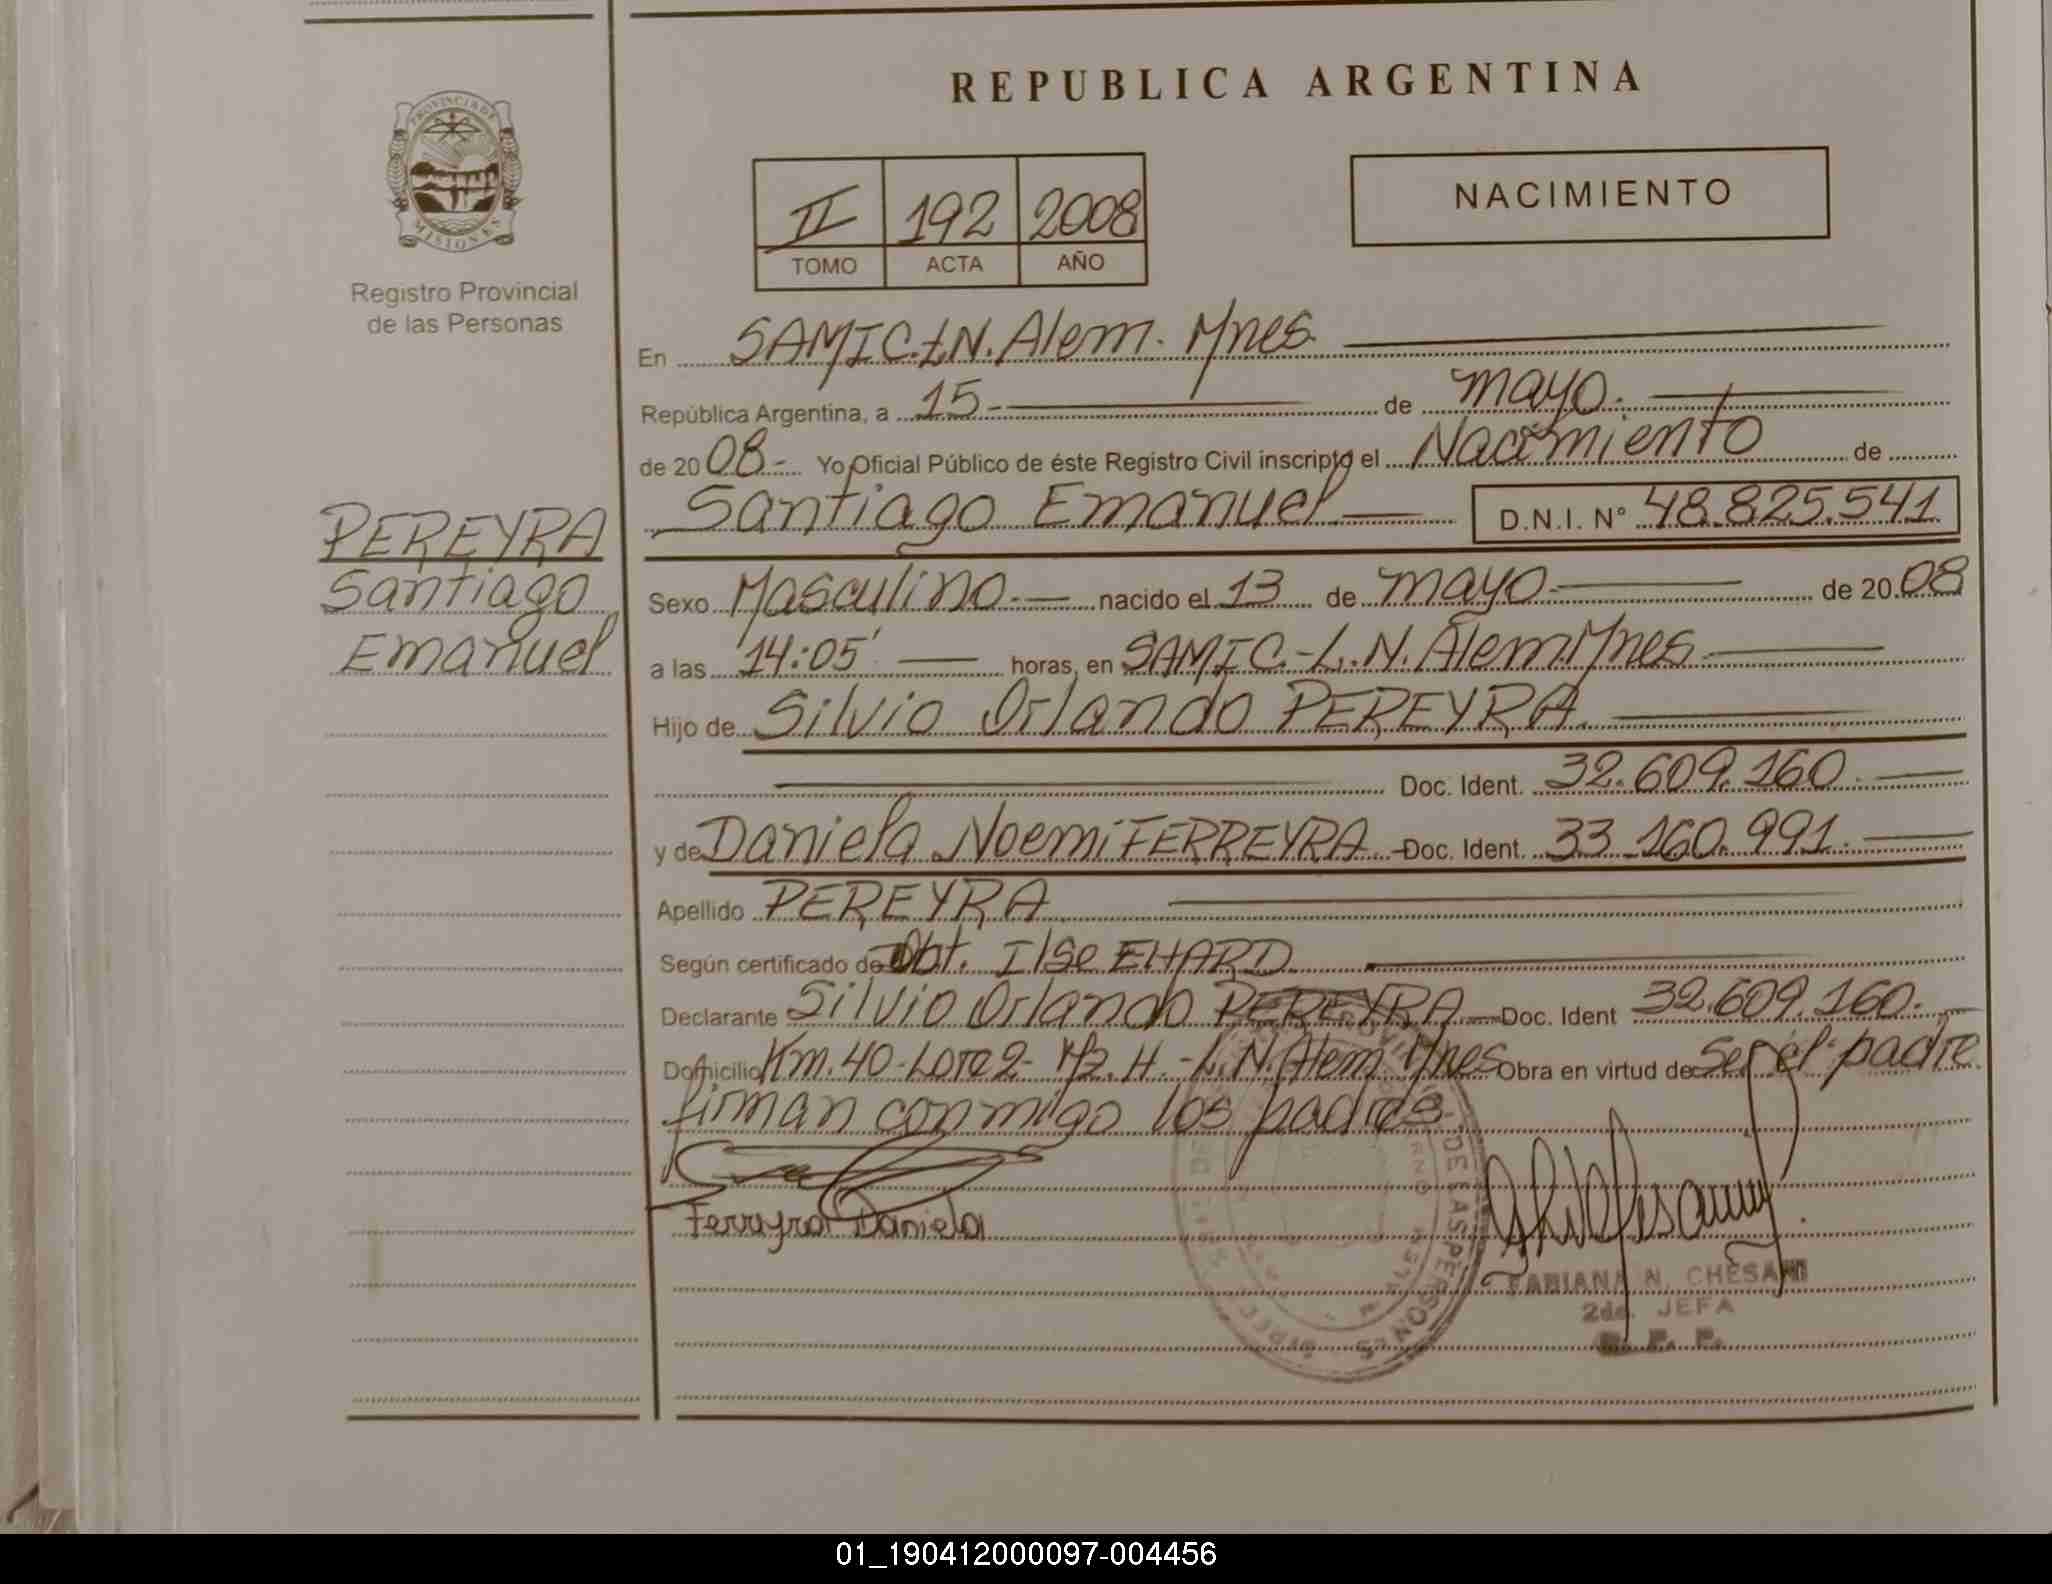 REPUBLICA ARGENTINA
PROVINCIA DE
MISIONES
Registro Provincial
de las Personas
II 192 2008
TOMO ACTA AÑO
NACIMIENTO
En SAMIC. L.N. Alem. Mnes.
República Argentina, a 15- de mayo.
de 2008- Yo Oficial Público de éste Registro Civil inscripto el Nacimiento de
Santiago Emanuel D.N.I. N° 48.825.541
PEREYRA
Santiago
Emanuel
Sexo Masculino.- nacido el 13 de mayo de 2008
a las 14:05' horas, en SAMIC.-L.N. Alem. Mnes
Hijo de Silvio Orlando PEREYRA.
Doc. Ident. 32.609.160.
y de Daniela Noemi FERREYRA.- Doc. Ident. 33.160.991.
Apellido PEREYRA
Según certificado de Obt. Ilse EHARD
Declarante Silvio Orlando PEREYRA Doc. Ident 32.609.160.
Domicilio Km.40-Lote 2- Mz. H.-L.N. Alem Mnes Obra en virtud de ser el padre.
firman conmigo los padres.
Ferreyra Daniela
DE LAS PERSONAS
MISIONES
FABIANA N. CHESANI
2da. JEFA
R. P. P.
01_190412000097-004456